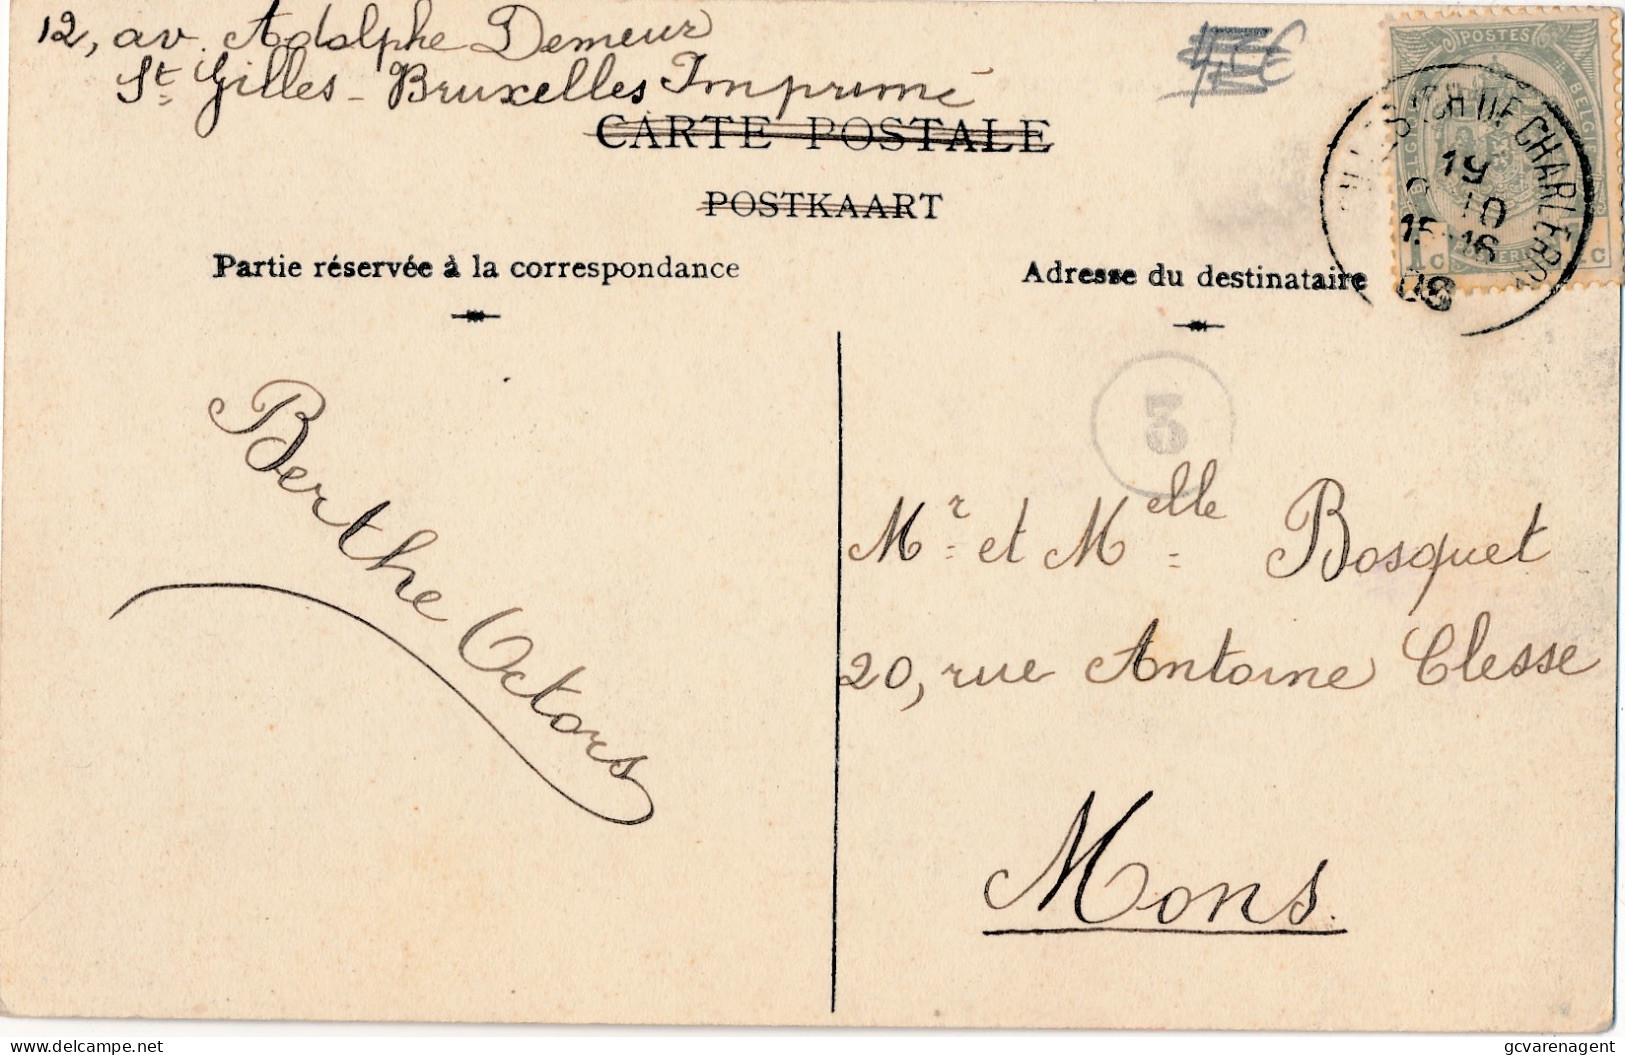 12, av. Adolphe Demeur
St Gilles - Bruxelles Imprimé
CARTE POSTALE
POSTKAART
Partie réservée à la correspondance
Adresse du destinataire
POSTES
BELGI
1 c
CH DE CHARLEROI
19
10
15-16
08
3
Berthe Octors
Mr et Melle Bosquet
20, rue Antoine Clesse
Mons.
www.delcampe.net
gcvarenagent